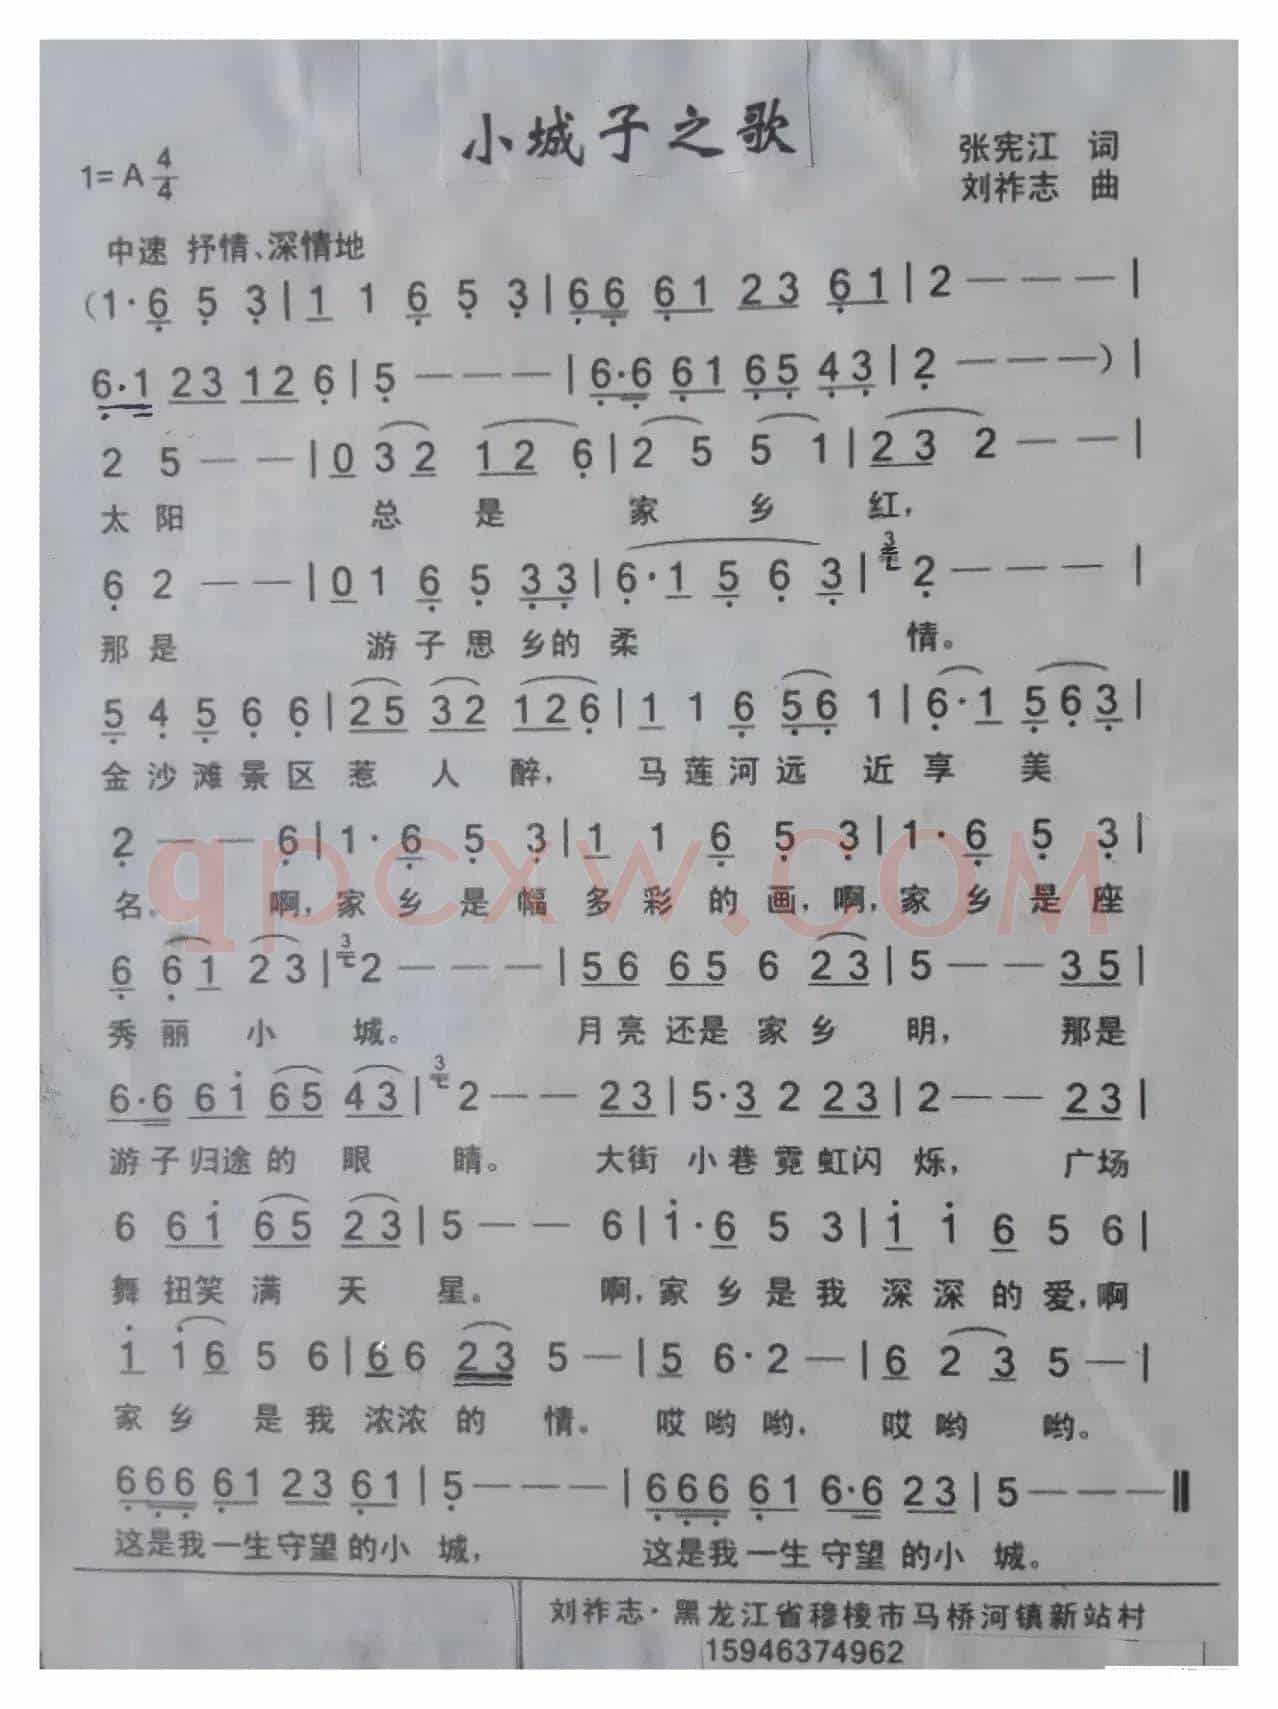 小城子之歌
1=A 4/4
张宪江 词
刘祚志 曲
中速 抒情、深情地
(1·6 5 3|1 1 6 5 3|66 61 23 61|2 — — —|
6·1 23 12 6|5 — — —|6·6 61 65 43|2 — — —)|
2 5 — —|0 3 2 1 2 6|2 5 5 1|2 3 2 — —|
太 阳 总 是 家 乡 红，
3
6 2 — —|0 1 6 5 33|6·1 5 6 3|2 — — —|
那 是 游 子 思 乡的 柔 情。
5 4 5 6 6|25 32 126|1 1 6 56 1|6·1 5 6 3|
金 沙 滩 景 区 惹 人 醉， 马 莲 河 远 近 享 美
2 — — 6|1·6 5 3|1 1 6 5 3|1·6 5 3|
名。 啊，家 乡 是 幅 多 彩 的 画，啊，家 乡 是 座
qpcxw.COM
6 6 1 2 3|3 2 — — —|56 65 6 23|5 — — 35|
秀 丽 小 城。 月 亮 还是 家 乡 明， 那是
6·6 61 65 43|3 2 — — 23|5·3 2 23|2 — — 23|
游 子 归途 的 眼 睛。 大街 小 巷 霓 虹闪 烁， 广场
6 61 65 23|5 — — 6|1·6 5 3|1 1 6 5 6|
舞 扭笑 满 天 星。 啊，家 乡 是 我 深 深 的 爱，啊
1 1 6 5 6|6 6 23 5 —|5 6·2 —|6 2 3 5 —|
家 乡 是 我 浓浓 的 情。 哎 哟 哟， 哎 哟 哟。
666 61 23 61|5 — — —|666 61 6·6 23|5 — — —‖
这是我 一生 守望 的小 城， 这是我 一生 守望 的小 城。
刘祚志·黑龙江省穆棱市马桥河镇新站村
15946374962